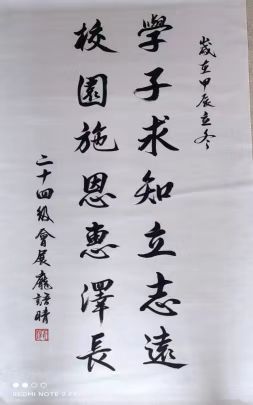 歲在甲辰立冬
學子求知立志遠
校園施恩惠澤長
二十四級會展龐語晴
REDMI NOTE 9